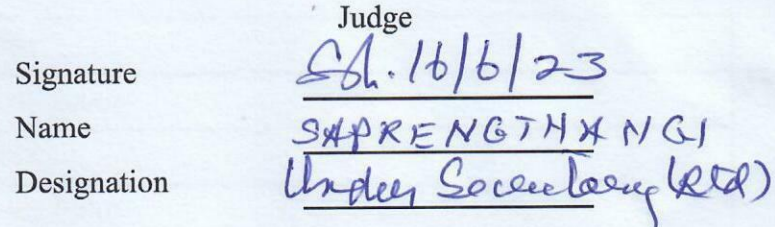 Judge
Signature Sd. 16/6/23
Name SAPRENGTHANGI
Designation Under Secretary (Rtd)